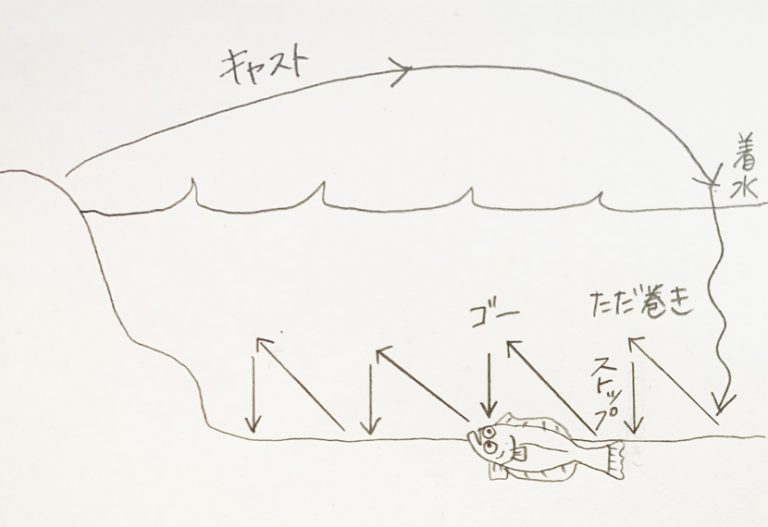 キャスト
着水
ゴー
ただ巻き
ストップ